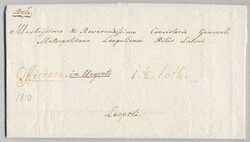 Illustrissimo & Reverendissimo Consistorio Generali
Metropolitano Leopoliensi Ritus Latini
Officiosa in Urgenti
1 ½ loth.
1810
Leopoli